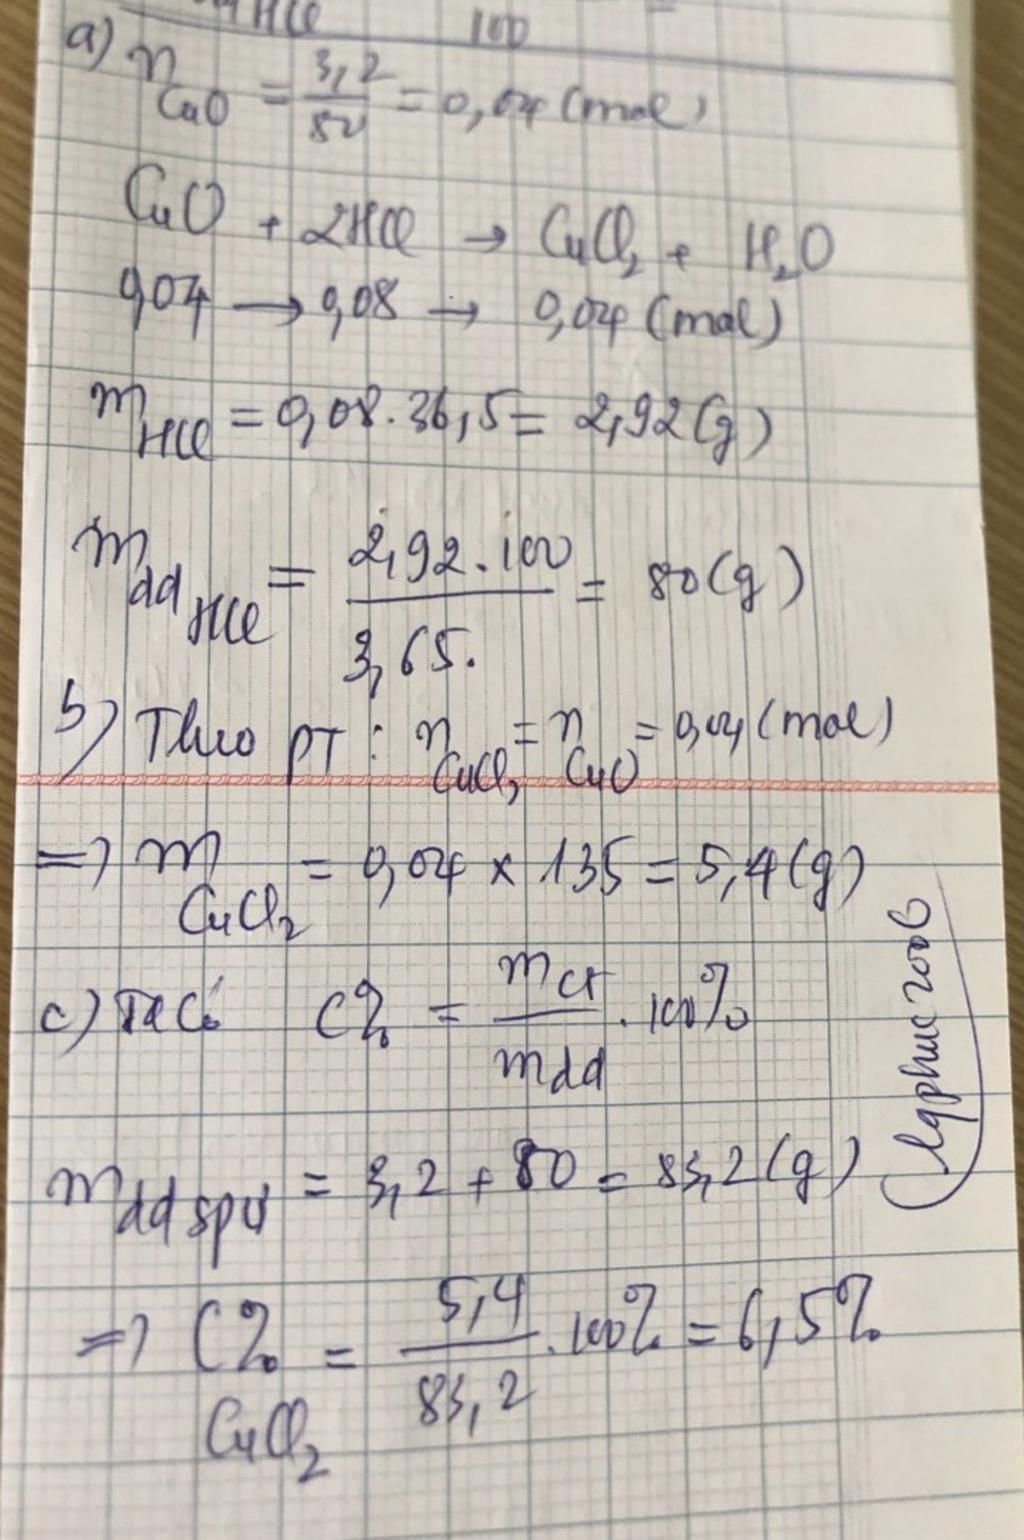 HCl 100
a) nCuO = 3,2/80 = 0,04 (mol)
CuO + 2HCl → CuCl2 + H2O
0,04 → 0,08 → 0,04 (mol)
mHCl = 0,08.36,5 = 2,92(g)
mddHCl = 2,92.100/3,65. = 80(g)
b) Theo PT: nCuCl2 = nCuO = 0,04 (mol)
=> mCuCl2 = 0,04 × 135 = 5,4(g)
c) Ta có C% = mct/mdd . 100%
mdd spứ = 3,2 + 80 = 83,2(g)
=> C% CuCl2 = 5,4/83,2 . 100% = 6,5%
lgphuc2006